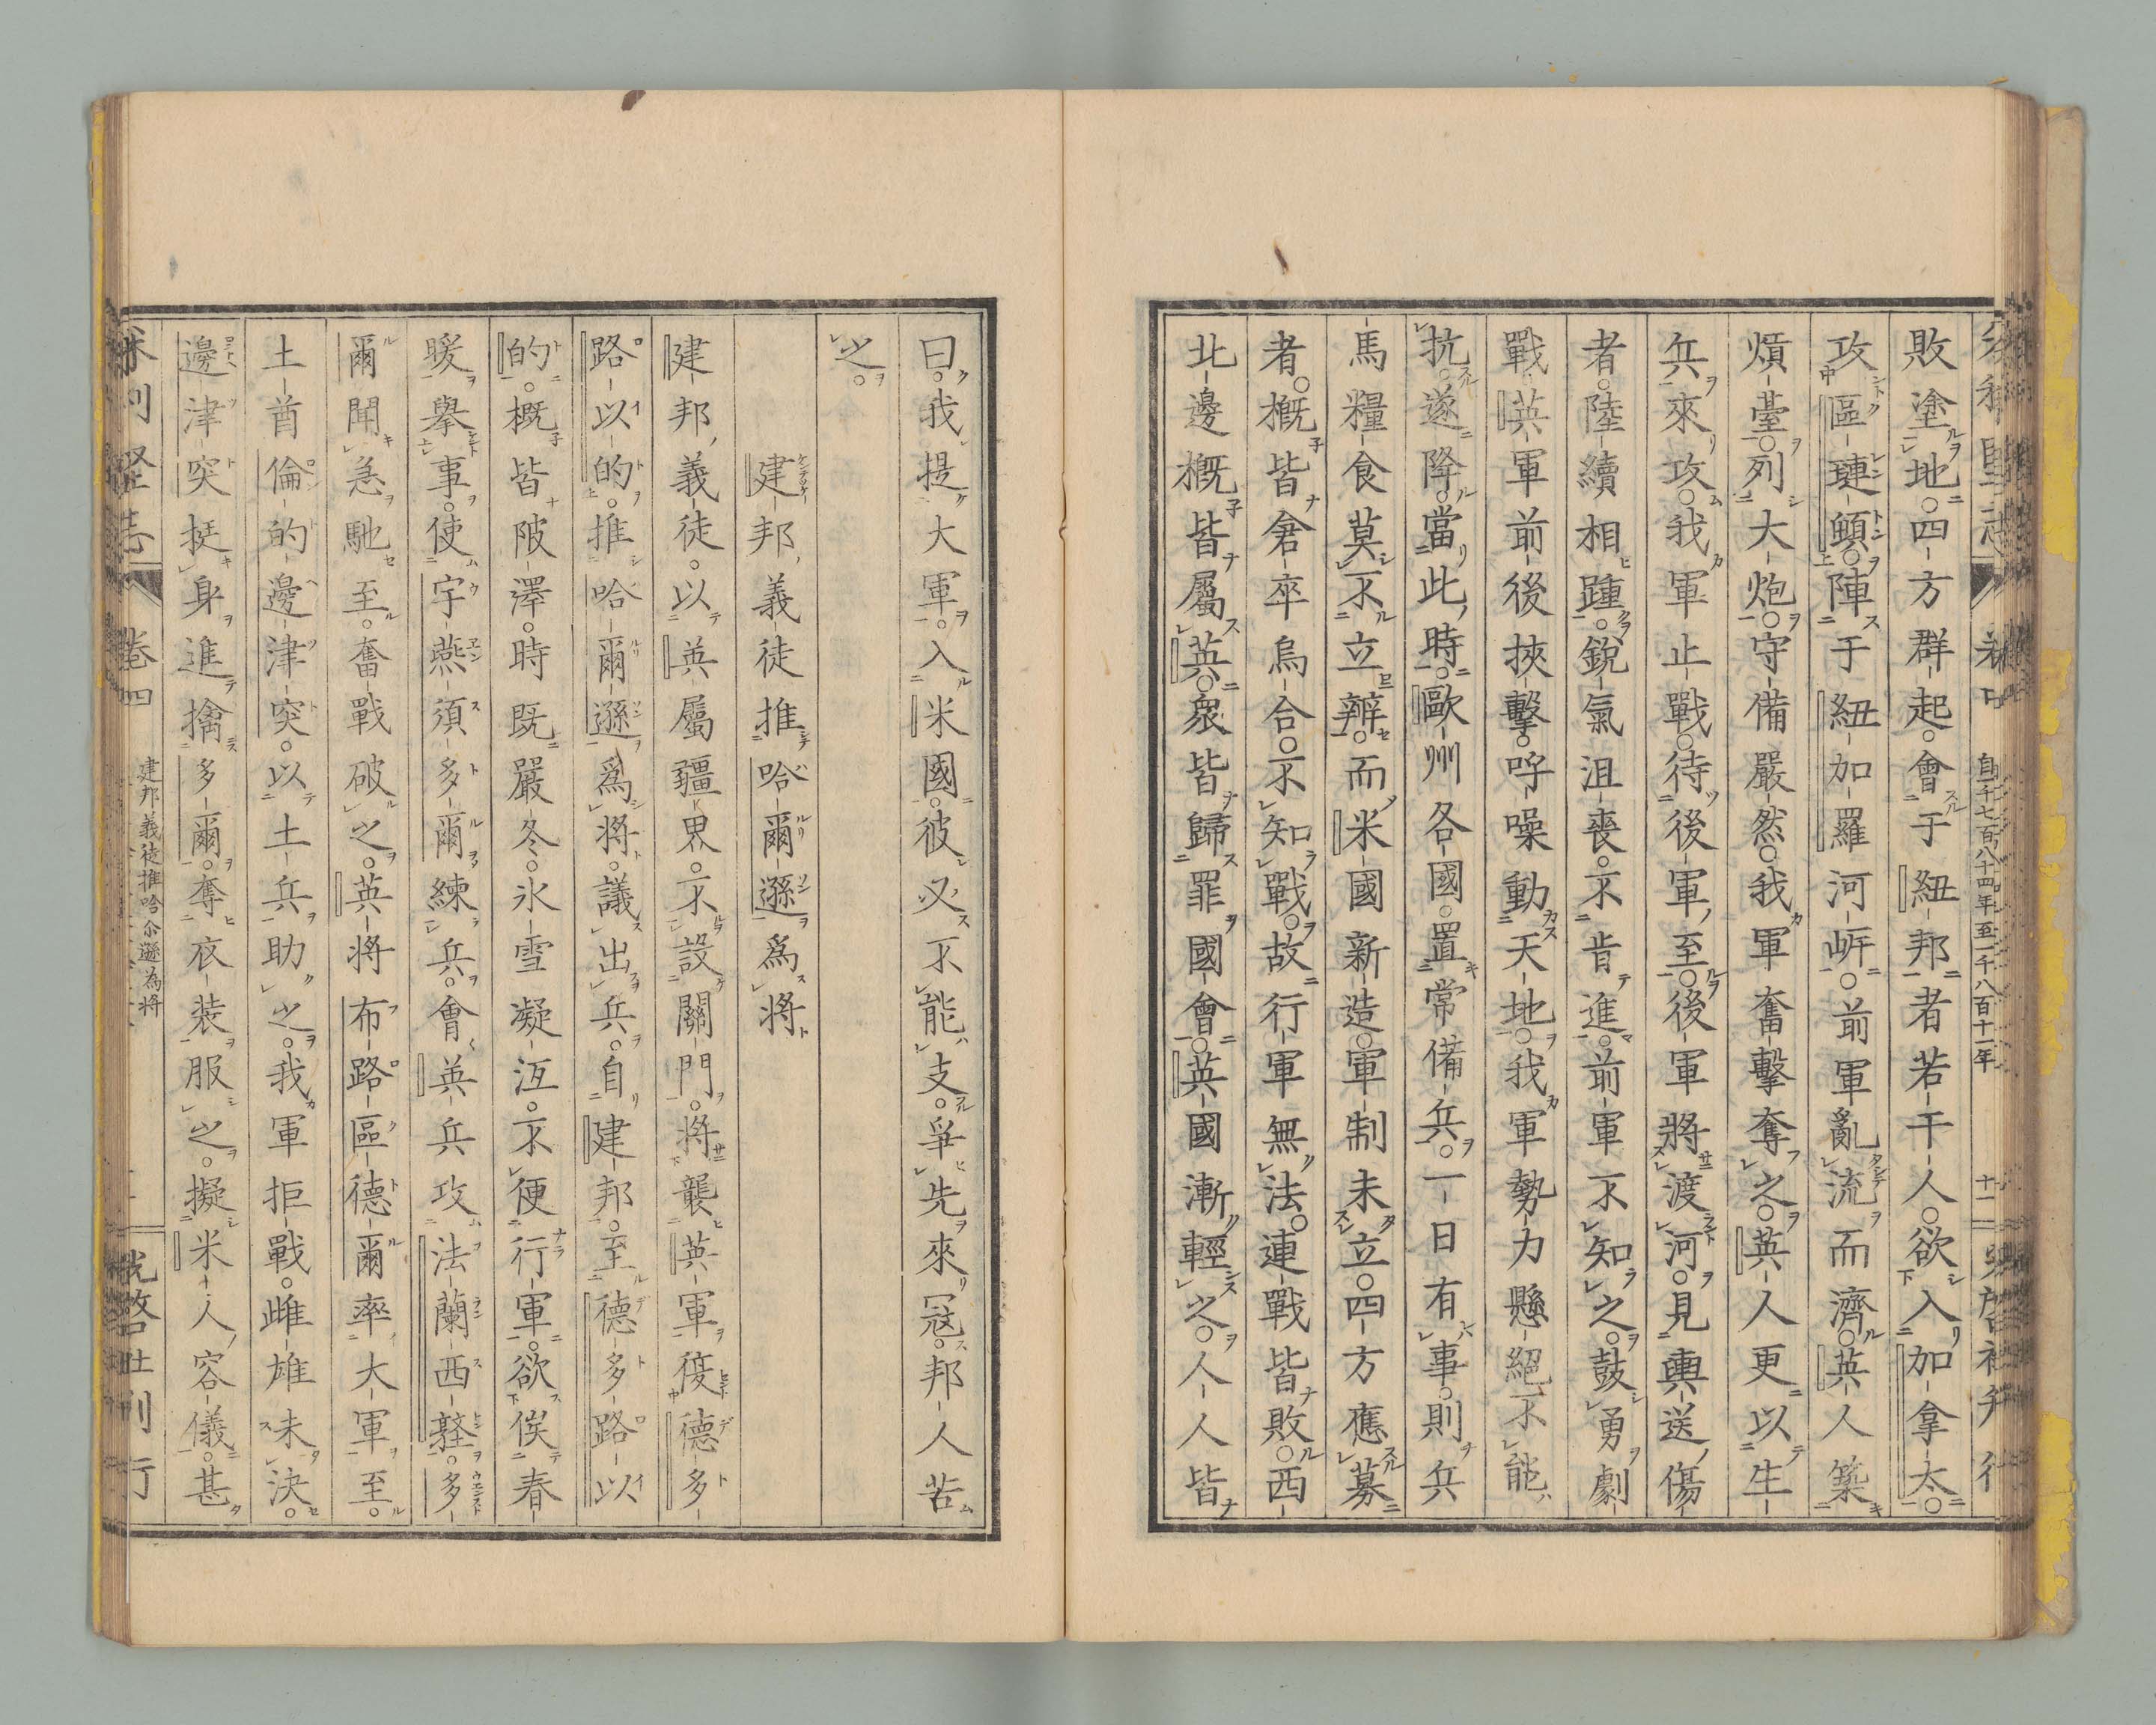 自千七百八十四年至一千八百十一年
十二
敗塗地。四方群起。會于紐邦者若干人。欲入加拿太。
攻區璉頓。陣于紐加羅河岍。前軍亂流而濟。英人築
煩臺。列大炮。守備嚴然。我軍奮擊奪之。英人更以生
兵來攻。我軍止戰。待後軍至。後軍將渡河。見輿送傷
者。陸續相踵。銳氣沮喪。不肯進。前軍不知之。鼓勇劇
戰。英軍前後挾擊。呼噪動天地。我軍勢力懸絕不能
抗。遂降。當此時。歐州各國。置常備兵。一日有事。則兵
馬糧食莫不立辨。而米國新造。軍制未立。四方應募
者。概皆倉卒烏合。不知戰。故行軍無法。連戰皆敗。西
北邊概皆屬英。衆皆歸罪國會。英國漸輕之。人人皆
曰。我提大軍。入米國。彼必不能支。爭先來冦。邦人苦
之。
建邦義徒推哈爾遜爲將
建邦義徒。以英屬疆界。不設關門。將襲英軍復德多
路以的。推哈爾遜爲將。議出兵。自建邦。至德多路以
的。概皆陂澤。時既嚴冬。氷雪凝冱。不便行軍。欲俟春
暖舉事。使宇燕須多爾練兵。會英兵攻法蘭西韃。多
爾聞急馳至。奮戰破之。英將布路區德爾率大軍至。
土酋倫的邊津突。以土兵助之。我軍拒戰。雌雄未決。
邊津突挺身進擒多爾。奪衣裝服之。擬米人容儀。甚
卷四
建邦義徒推哈尒遜為將